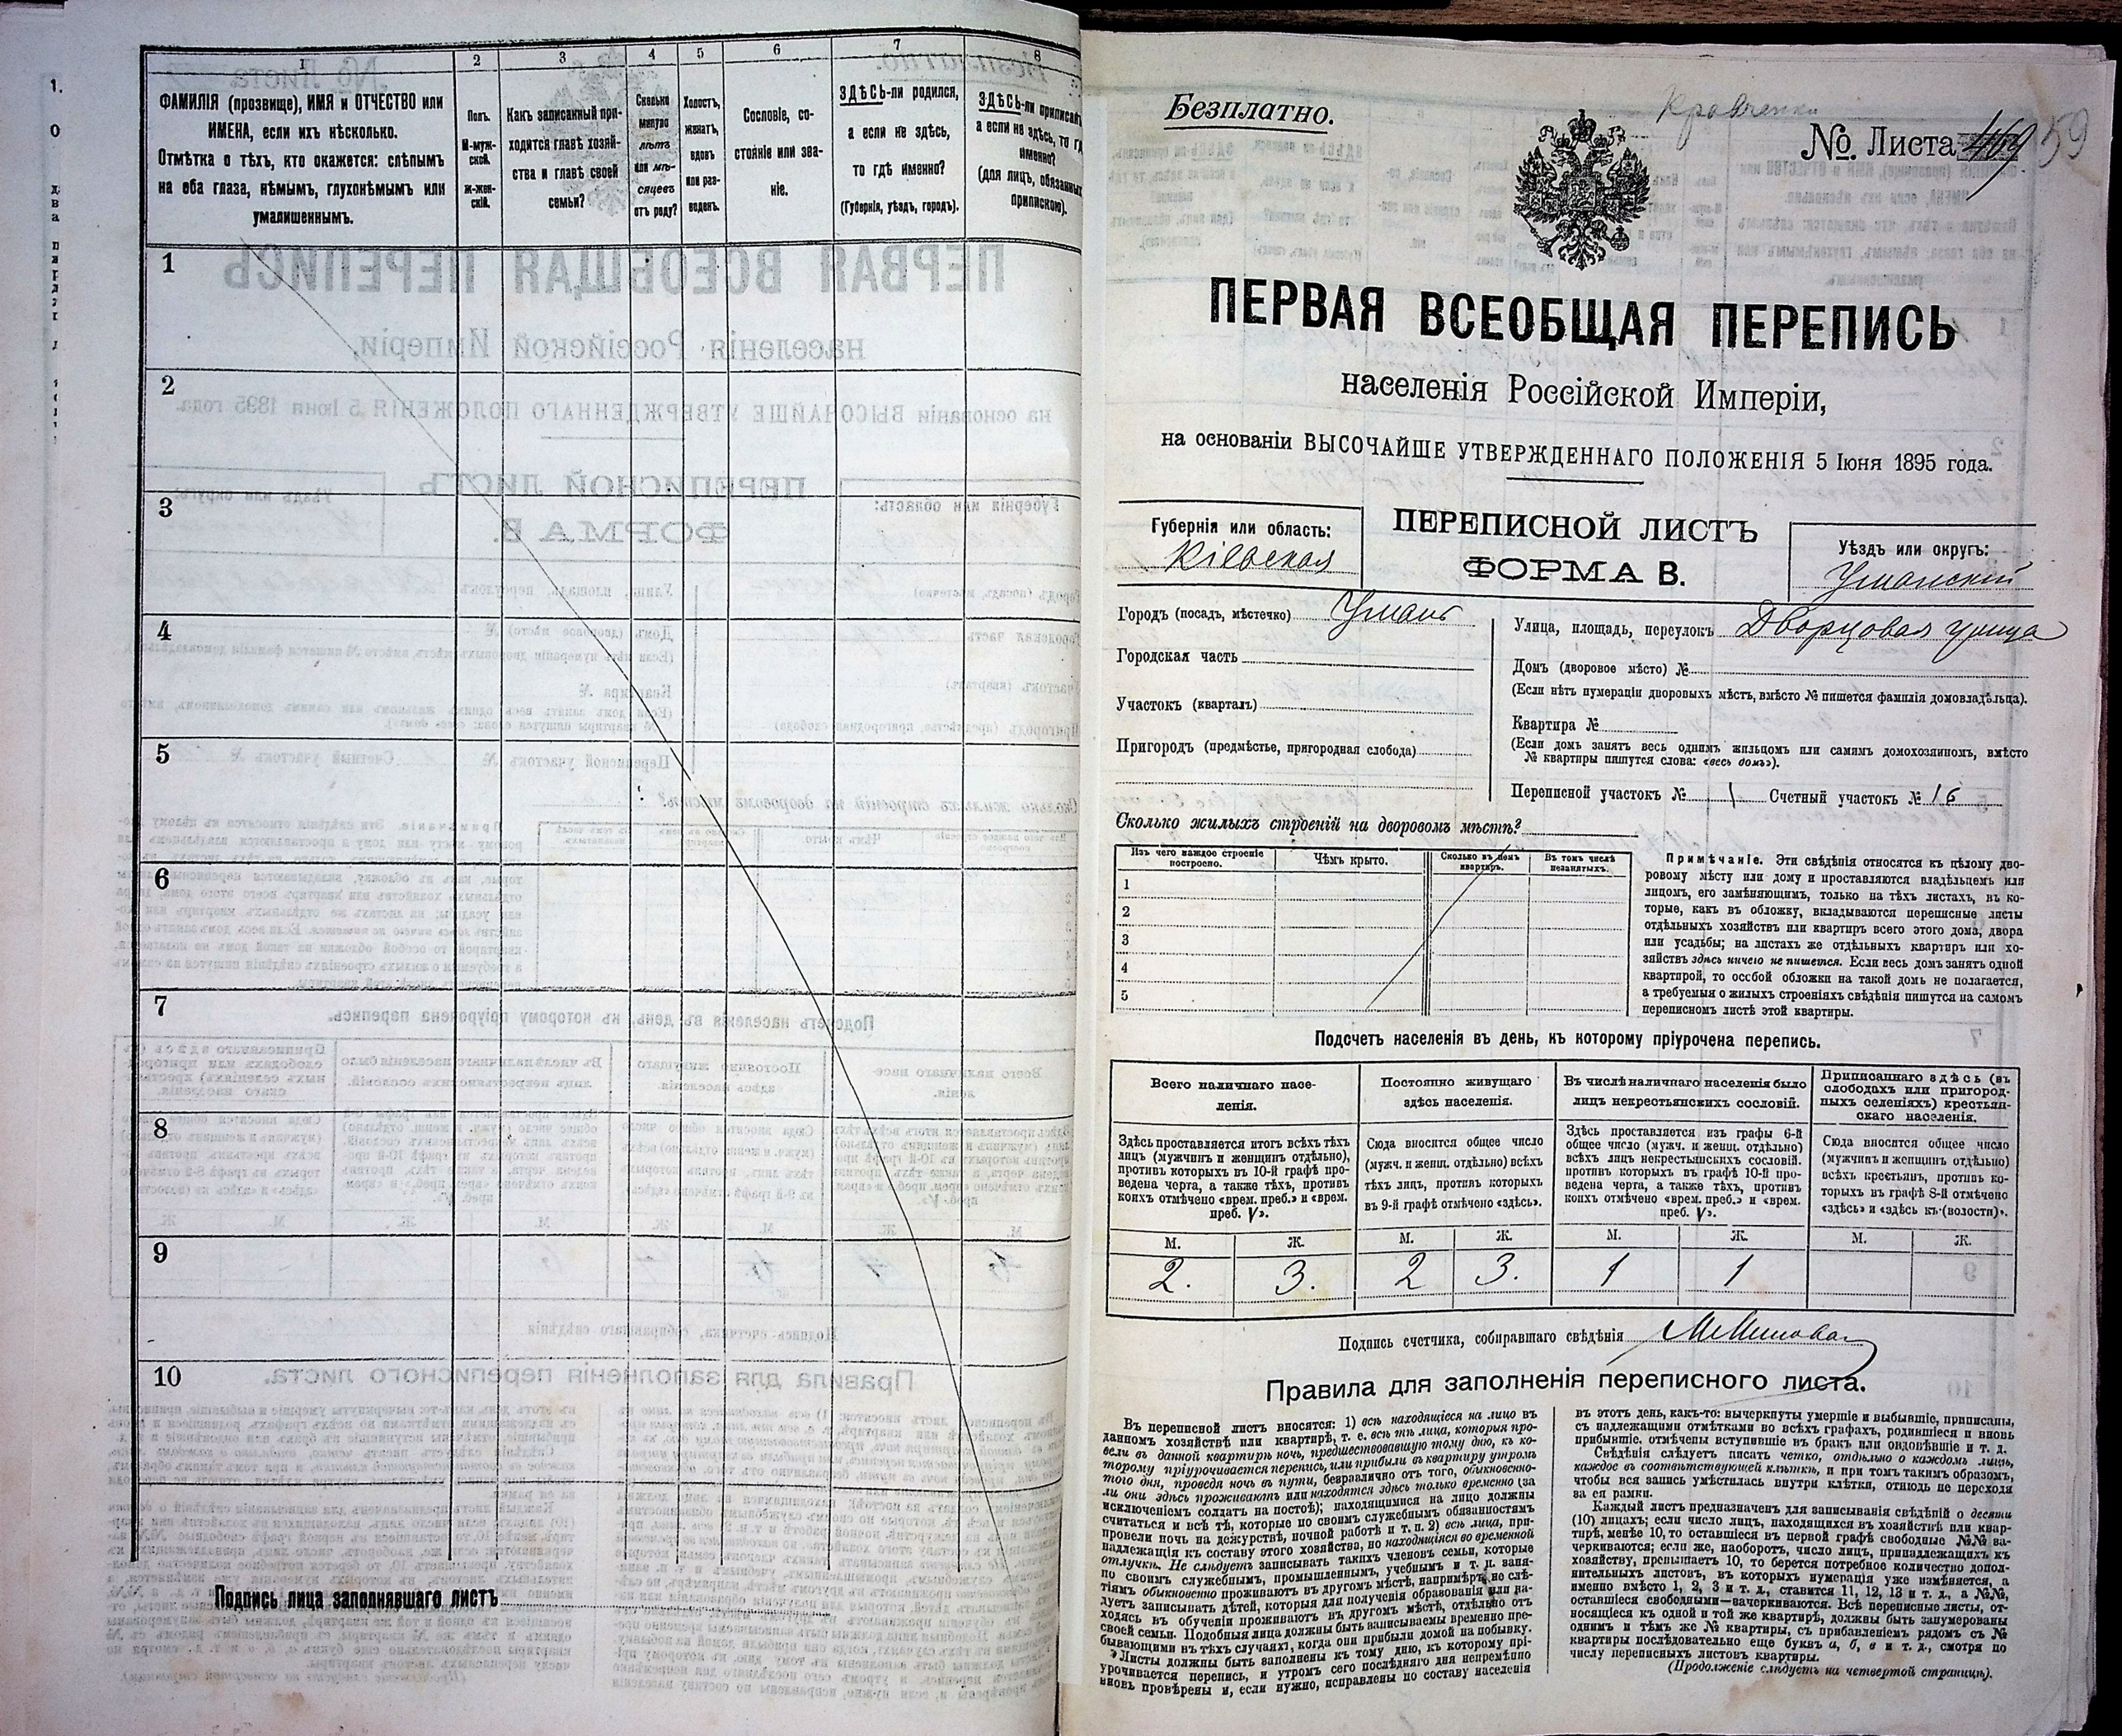 1 2 3 4 5 6 7 8
ФАМИЛІЯ (прозвище), ИМЯ и ОТЧЕСТВО или
ИМЕНА, если ихъ нѣсколько.
Отмѣтка о тѣхъ, кто окажется: слѣпымъ
на оба глаза, нѣмымъ, глухонѣмымъ или
умалишеннымъ.
Полъ.
М-муж-
ской.
ж-жен-
скій.
Какъ записанный при-
ходится главѣ хозяй-
ства и главѣ своей
семьи?
Сколько
минуло
лѣтъ
или мѣ-
сяцевъ
отъ роду?
Холостъ,
женатъ,
вдовъ
или раз-
веденъ.
Сословіе, со-
стояніе или зва-
ніе.
ЗДѢСЬ-ли родился,
а если не здѣсь,
то гдѣ именно?
(Губернія, уѣздъ, городъ).
ЗДѢСЬ-ли приписанъ
а если не здѣсь, то гдѣ
именно?
(для лицъ, обязанныхъ
припискою).
1
2
3
4
5
6
7
8
9
10
Подпись лица заполнявшаго листъ
Безплатно.
Кравченко
№ Листа 59
ПЕРВАЯ ВСЕОБЩАЯ ПЕРЕПИСЬ
населенія Россійской Имперіи,
на основаніи ВЫСОЧАЙШЕ УТВЕРЖДЕННАГО ПОЛОЖЕНІЯ 5 Іюня 1895 года.
Губернія или область:
Кіевская
ПЕРЕПИСНОЙ ЛИСТЪ
ФОРМА В.
Уѣздъ или округъ:
Уманскій
Городъ (посадъ, мѣстечко) Умань
Городская часть
Участокъ (кварталъ)
Пригородъ (предмѣстье, пригородная слобода)
Улица, площадь, переулокъ Дворцовая улица
Домъ (дворовое мѣсто) №
(Если нѣтъ нумераціи дворовыхъ мѣстъ, вмѣсто № пишется фамилія домовладѣльца).
Квартира №
(Если домъ занятъ весь однимъ жильцомъ или самимъ домохозяиномъ, вмѣсто
№ квартиры пишутся слова: «весь домъ»).
Переписной участокъ № 1 Счетный участокъ № 16
Сколько жилыхъ строеній на дворовомъ мѣстѣ?
Изъ чего каждое строеніе
построено.
Чѣмъ крыто.
Сколько въ немъ
квартиръ.
Въ томъ числѣ
незанятыхъ.
1
2
3
4
5
Примѣчаніе. Эти свѣдѣнія относятся къ цѣлому дво-
ровому мѣсту или дому и проставляются владѣльцемъ или
лицомъ, его замѣняющимъ, только на тѣхъ листахъ, въ ко-
торые, какъ въ обложку, вкладываются переписные листы
отдѣльныхъ хозяйствъ или квартиръ всего этого дома, двора
или усадьбы; на листахъ же отдѣльныхъ квартиръ или хо-
зяйствъ здѣсь ничего не пишется. Если весь домъ занятъ одной
квартирой, то особой обложки на такой домъ не полагается,
а требуемыя о жилыхъ строеніяхъ свѣдѣнія пишутся на самомъ
переписномъ листѣ этой квартиры.
Подсчетъ населенія въ день, къ которому пріурочена перепись.
Всего наличнаго насе-
ленія.
Здѣсь проставляется итогъ всѣхъ тѣхъ
лицъ (мужчинъ и женщинъ отдѣльно),
противъ которыхъ въ 10-й графѣ про-
ведена черта, а также тѣхъ, противъ
коихъ отмѣчено «врем. преб.» и «врем.
преб. V».
Постоянно живущаго
здѣсь населенія.
Сюда вносится общее число
(мужч. и женщ. отдѣльно) всѣхъ
тѣхъ лицъ, противъ которыхъ
въ 9-й графѣ отмѣчено «здѣсь».
Въ числѣ наличнаго населенія было
лицъ некрестьянскихъ сословій.
Здѣсь проставляется изъ графы 6-й
общее число (мужч. и женщ. отдѣльно)
всѣхъ лицъ некрестьянскихъ сословій.
противъ которыхъ въ графѣ 10-й про-
ведена черта, а также тѣхъ, противъ
коихъ отмѣчено «врем. преб.» и «врем.
преб. V».
Приписаннаго здѣсь (въ
слободахъ или пригород-
ныхъ селеніяхъ) крестьян-
скаго населенія.
Сюда вносится общее число
(мужчинъ и женщинъ отдѣльно)
всѣхъ крестьянъ, противъ ко-
торыхъ въ графѣ 8-й отмѣчено
«здѣсь» и «здѣсь къ (волости)».
М. Ж. М. Ж. М. Ж. М. Ж.
2. 3. 2 3. 1 1
Подпись счетчика, собиравшаго свѣдѣнія
Правила для заполненія переписного листа.
Въ переписной листъ вносятся: 1) всѣ находящіеся на лицо въ
данномъ хозяйствѣ или квартирѣ, т. е. всѣ тѣ лица, которыя про-
вели въ данной квартирѣ ночь, предшествовавшую тому дню, къ ко-
торому пріурочивается перепись, или прибыли въ квартиру утромъ
того дня, проведя ночь въ пути, безразлично отъ того, обыкновенно-
ли они здѣсь проживаютъ или находятся здѣсь только временно (за
исключеніемъ солдатъ на постоѣ); находящимися на лицо должны
считаться и всѣ тѣ, которые по своимъ служебнымъ обязанностямъ
провели ночь на дежурствѣ, ночной работѣ и т. п. 2) всѣ лица, при-
надлежащія къ составу этого хозяйства, но находящіяся во временной
отлучкѣ. Не слѣдуетъ записывать такихъ членовъ семьи, которые
по своимъ служебнымъ, промышленнымъ, учебнымъ и т. п. заня-
тіямъ обыкновенно проживаютъ въ другомъ мѣстѣ, напримѣръ, не слѣ-
дуетъ записывать дѣтей, которыя для полученія образованія или на-
ходясь въ обученіи проживаютъ въ другомъ мѣстѣ, отдѣльно отъ
своей семьи. Подобныя лица должны быть записываемы временно пре-
бывающими въ тѣхъ случаяхъ, когда они прибыли домой на побывку.
Листы должны быть заполнены къ тому дню, къ которому прі-
урочивается перепись, и утромъ сего послѣдняго дня непремѣнно
вновь провѣрены и, если нужно, исправлены по составу населенія
въ этотъ день, какъ-то: вычеркнуты умершіе и выбывшіе, приписаны,
съ надлежащими отмѣтками во всѣхъ графахъ, родившіеся и вновь
прибывшіе. отмѣчены вступившіе въ бракъ или овдовѣвшіе и т. д.
Свѣдѣнія слѣдуетъ писать четко, отдѣльно о каждомъ лицѣ,
каждое въ соотвѣтствующей клѣткѣ, и при томъ такимъ образомъ,
чтобы вся запись умѣстилась внутри клѣтки, отнюдь не переходя
за ея рамки.
Каждый листъ предназначенъ для записыванія свѣдѣній о десяти
(10) лицахъ; если число лицъ, находящихся въ хозяйствѣ или квар-
тирѣ, менѣе 10, то оставшіеся въ первой графѣ свободные №№ за-
черкиваются; если же, наоборотъ, число лицъ, принадлежащихъ къ
хозяйству, превышаетъ 10, то берется потребное количество допол-
нительныхъ листовъ, въ которыхъ нумерація уже измѣняется, а
именно вмѣсто 1, 2, 3 и т. д., ставится 11, 12, 13 и т. д., а №№,
оставшіеся свободными—зачеркиваются. Всѣ переписные листы, от-
носящіеся къ одной и той же квартирѣ, должны быть занумерованы
однимъ и тѣмъ же № квартиры, съ прибавленіемъ рядомъ съ №
квартиры послѣдовательно еще буквъ а, б, в и т. д., смотря по
числу переписныхъ листовъ квартиры.
(Продолженіе слѣдуетъ на четвертой страницѣ).